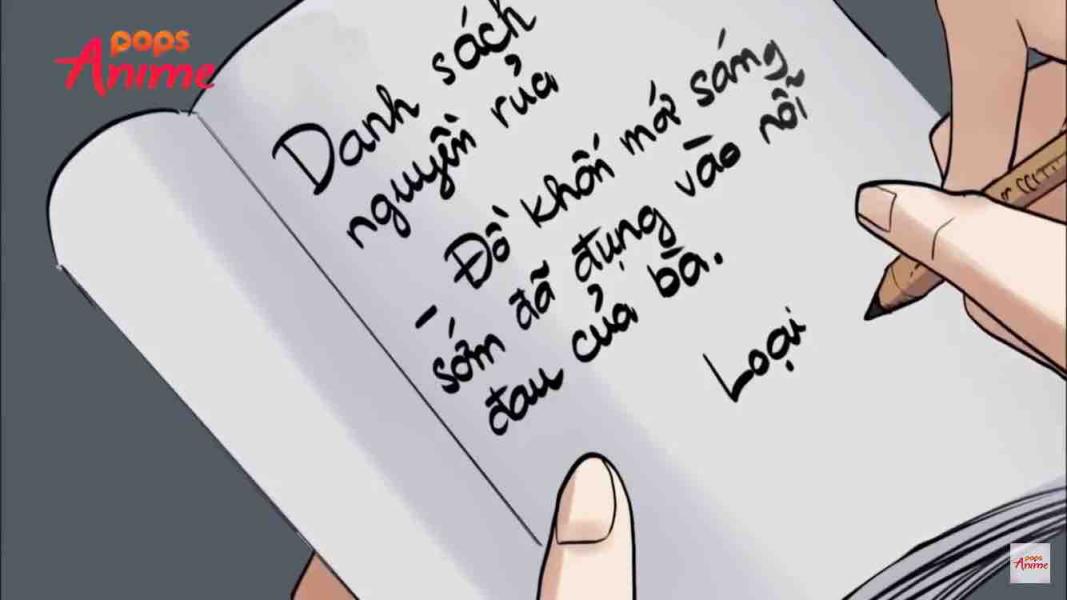 POPS
Anime
Danh sách
nguyền rủa
- Đồ khốn mới sáng
sớm đã đụng vào nỗi
đau của bà.
Loại
POPS
Anime